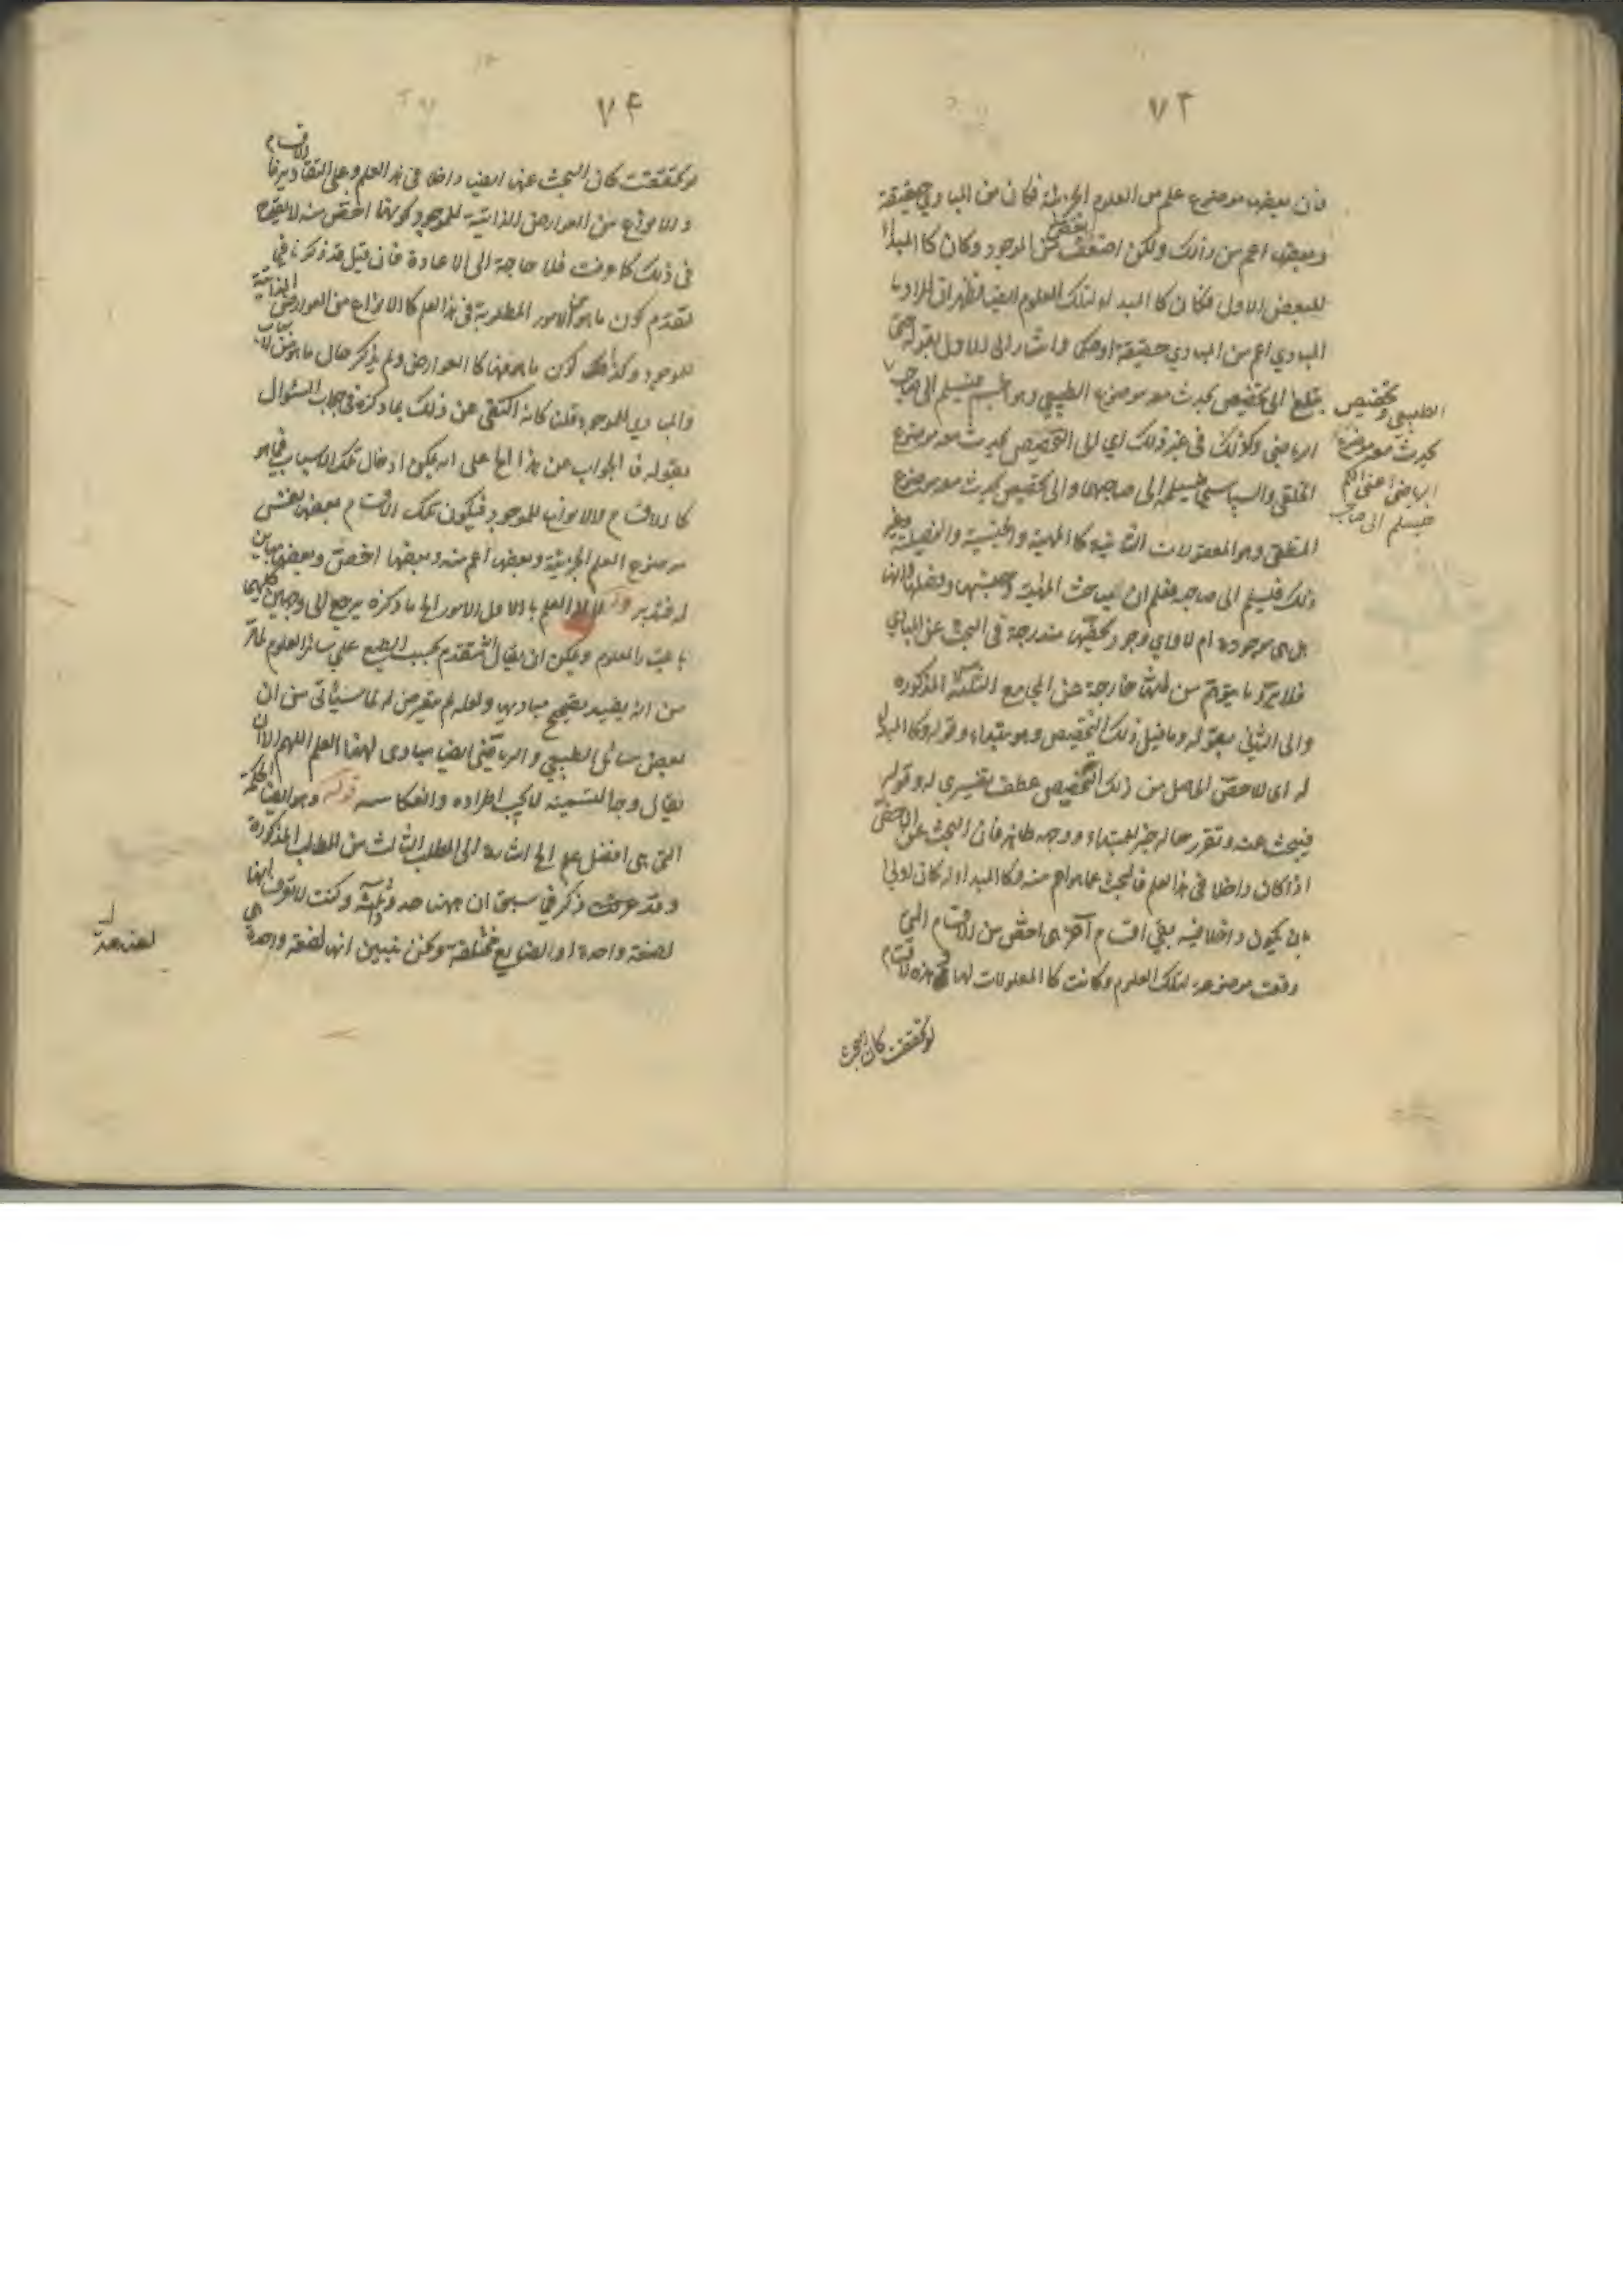 ٧٣
فان بعضها موضوع علم من العلوم الجزئية فكان من المبادي حقيقة
وبعضها اعم من ذلك ولكن بعض من الموجود وكان كالمبدأ
للبعض الاول فكان كالمبدء لتلك العلوم ايضا فظهر ان المراد بالـ
المبادي اعم من المبادي حقيقة او حكما واشار الى الاول بقوله حتى
يبلغ الى تخصيص يحدث معه موضوع الطبيعي وهو الجسم فيسلم الى صاحب
الطبيعي وتخصيص
يحدث معه موضوع
الرياضي اعني الكم
فيسلم الى صاحب
الرياضي وكذلك في غير ذلك اي الى التخصيص يحدث معه موضوع
الخلقي والسياسي فيسلم الى صاحبهما والى تخصيص يحدث معه موضوع
المنطقي وهو المعقولات الثانية كالمهية والجنسية والفصلية وغير
ذلك فليسلم الى صاحبه فعلم ان المباحث المهية وجنسها وفصلها وانها
هل هي موجودة ام لا واي وجود يخصها مندرجة في البحث عن المبادي
فلا يرد ما يتوهم من انها خارجة عن المجامع الثلثة المذكورة
والى الثاني بقوله وما قبل ذلك التخصيص وهو مبتداء وقوله وكالمبدأ
له اى للاخص الحاصل من ذلك التخصيص عطف تفسيري له وقوله
فيبحث عنه وتقرر حاله خبر لمبتداء ووجهه ظاهر فان البحث عن الاخص
اذا كان داخلا في هذا العلم فالبحث عما هو اعم منه وكالمبداء له كان اولى
بان يكون داخلا فيه بقي اقسام آخر هى اخص من الاقسام التي
وقعت موضوعة لتلك العلوم وكانت كالمعلولات لها وهذه الاقسام
لو تحققت كان البحث
٧٤
لو تحققت كان البحث عنها ايضا داخلا في هذا العلم وعلى التقادير فالاقسام
والانواع من العوارض الذاتية للموجود كونها اخص منه لا يقدح
في ذلك كما عرفت فلا حاجة الى الاعادة فان قيل قد ذكرنا في
تقدم كون ما هو من الامور المطلوبة في هذا العلم كالانواع من العوارض الذاتية
للموجود وكذلك كون ما هو منها كالعوارض ولم يذكر حال ما هو من الاسباب
والمبادي للموجود قلت كانه اكتفى عن ذلك بما ذكره في جواب السؤال
بقوله فالجواب عن هذا الخ على انه يمكن ادخال تلك الاسباب فيما هو
كالاقسام لالانواع للموجود فيكون تلك الاقسام بعضها نفس
موضوع العلم الجزئية وبعضها اعم منه وبعضها اخص وبعضها مباين
له فتدبر قوله العلم بالاول الامور الخ ما ذكره يرجع الى وجهين كليهما
باعتبار المعلوم ويمكن ان يقال المتقدم بحسب الطبع على سائر العلوم لما مر
من انه يفيد تصحيح مباديها ولعله لم يتعرض له لما سيأتي من ان
بعض مسائل الطبيعي والرياضي ايضا مبادى لهذا العلم اللهم الا ان
يقال وجه التسمية لا يجب اطراده وانعكاسه قوله وهو ايضا الحكمة
التي هى افضل علم الخ اشارة الى المطلب الثالث من المطالب المذكورة
وقد عرفت ذكر في سبق ان ههنا حدود ثلثة وكنت لا تعرف انها
لصنعة واحدة او لصنايع مختلفة سوكن نبين انها لصنعة واحدة هي
لصناعة